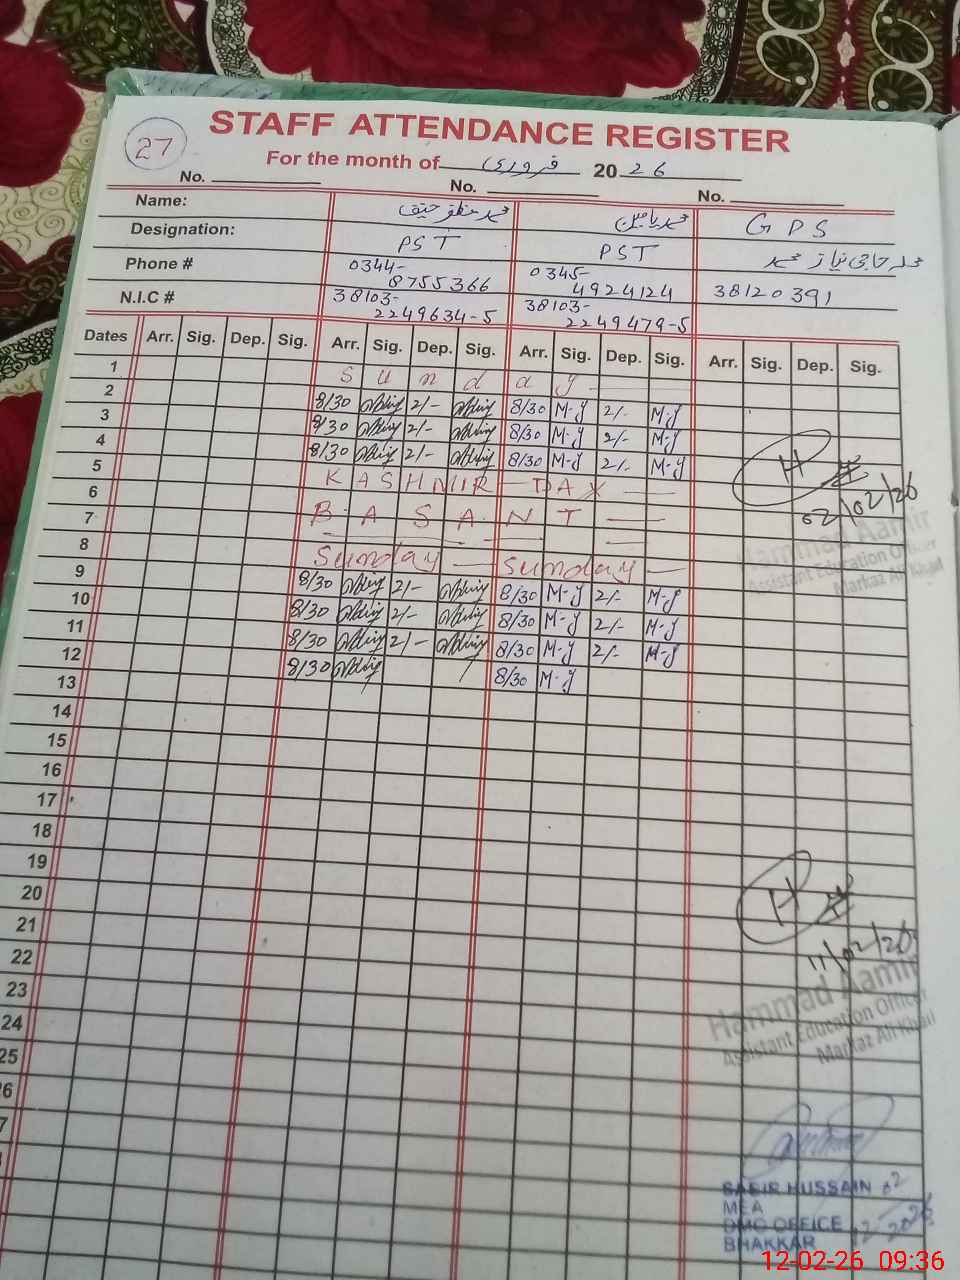 27
STAFF ATTENDANCE REGISTER
For the month of فروری 2026
No. No. No.
Name: محمد مظفر حنیف محمد یامین G P S
Designation: PST PST محلہ حاجی نیاز محمد
Phone # 0344-8755366 0345-4924124 38120391
N.I.C # 38103-2249634-5 38103-2249479-5
Dates Arr. Sig. Dep. Sig. Arr. Sig. Dep. Sig. Arr. Sig. Dep. Sig. Arr. Sig. Dep. Sig.
1 S u n d a y
2 8/30 2/- 8/30 M-J 2/- M-J
3 8/30 2/- 8/30 M-J 2/- M-J
4 8/30 2/- 8/30 M-J 2/- M-J
5 KASHMIR DAY
6 B A S A N T
7
8 Sunday Sunday
9 8/30 2/- 8/30 M-J 2/- M-J
10 8/30 2/- 8/30 M-J 2/- M-J
11 8/30 2/- 8/30 M-J 2/- M-J
12 8/30 8/30 M-J
13
14
15
16
17
18
19
20
21
22
23
24
25
26
H
02/02/26
Hammad Aamir
Assistant Education Officer
Markaz Ali Khail
H
11/02/26
Hammad Aamir
Assistant Education Officer
Markaz Ali Khail
SABIR HUSSAIN
MEA
DMO OFFICE
BHAKKAR
12-02-2026
12-02-26 09:36